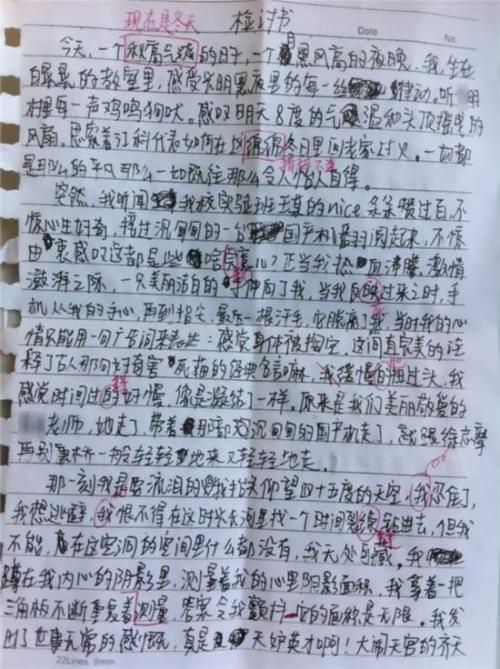 现在是冬天
检讨书
Date
No.
今天,一个秋高气爽的日子,一个月黑风高的夜晚,我,坐在
的教室里,感受光明黑夜里的每一丝律动,听
村里每一声鸡鸣狗吠。感叹明天8度的气温和头顶摇曳的
风扇。思索着江科代表如何在凶冬日里问老家上火。一切都
是那么的平凡那么一如既往那么令人怡人自得。
突然,我听闻我校实验班王真的nice条条赞过百,不
惊心生好奇,接过沉甸甸的一台国产机翻阅起来,不惊
由衷感叹这都是些啥心?正当我热血沸腾,激情
澎湃之际,一只美丽洁白的手伸向了我,当我反应过来之时,手
机从我的手心,再到指尖,最后一根汗毛,它脱离了我,当时我的心
情只能用一句广告词来表达:感觉身体被掏空,这词真完美的诠
释了古人那句好奇害死猫的经典名言嘛,我缓慢的扭过头,我
感觉时间过的好慢,像是凝结了一样。原来是我们美丽敬爱的
老师,她走了,带着那部沉甸甸的国产机走了,就跟徐志摩
再别康桥一般轻轻地来又轻轻地走。
那一刻我是要流泪的,我抬头仰望四十五度的天空,我忍住了,
我想逃避,我恨不得在这时光长河里找一个时间裂缝钻进去,但我
不能,在这空洞的空间里什么都没有,我无处可藏。我
蹲在我内心的阴影里,测量着我的心里阴影面积,我拿着一把
三角板不断重复着测量,答案令我颤抖,它的面积是无限。我发
出了世事无常的感慨,真是天妒英才啊!大闹天宫的齐天
22Lines 8mm